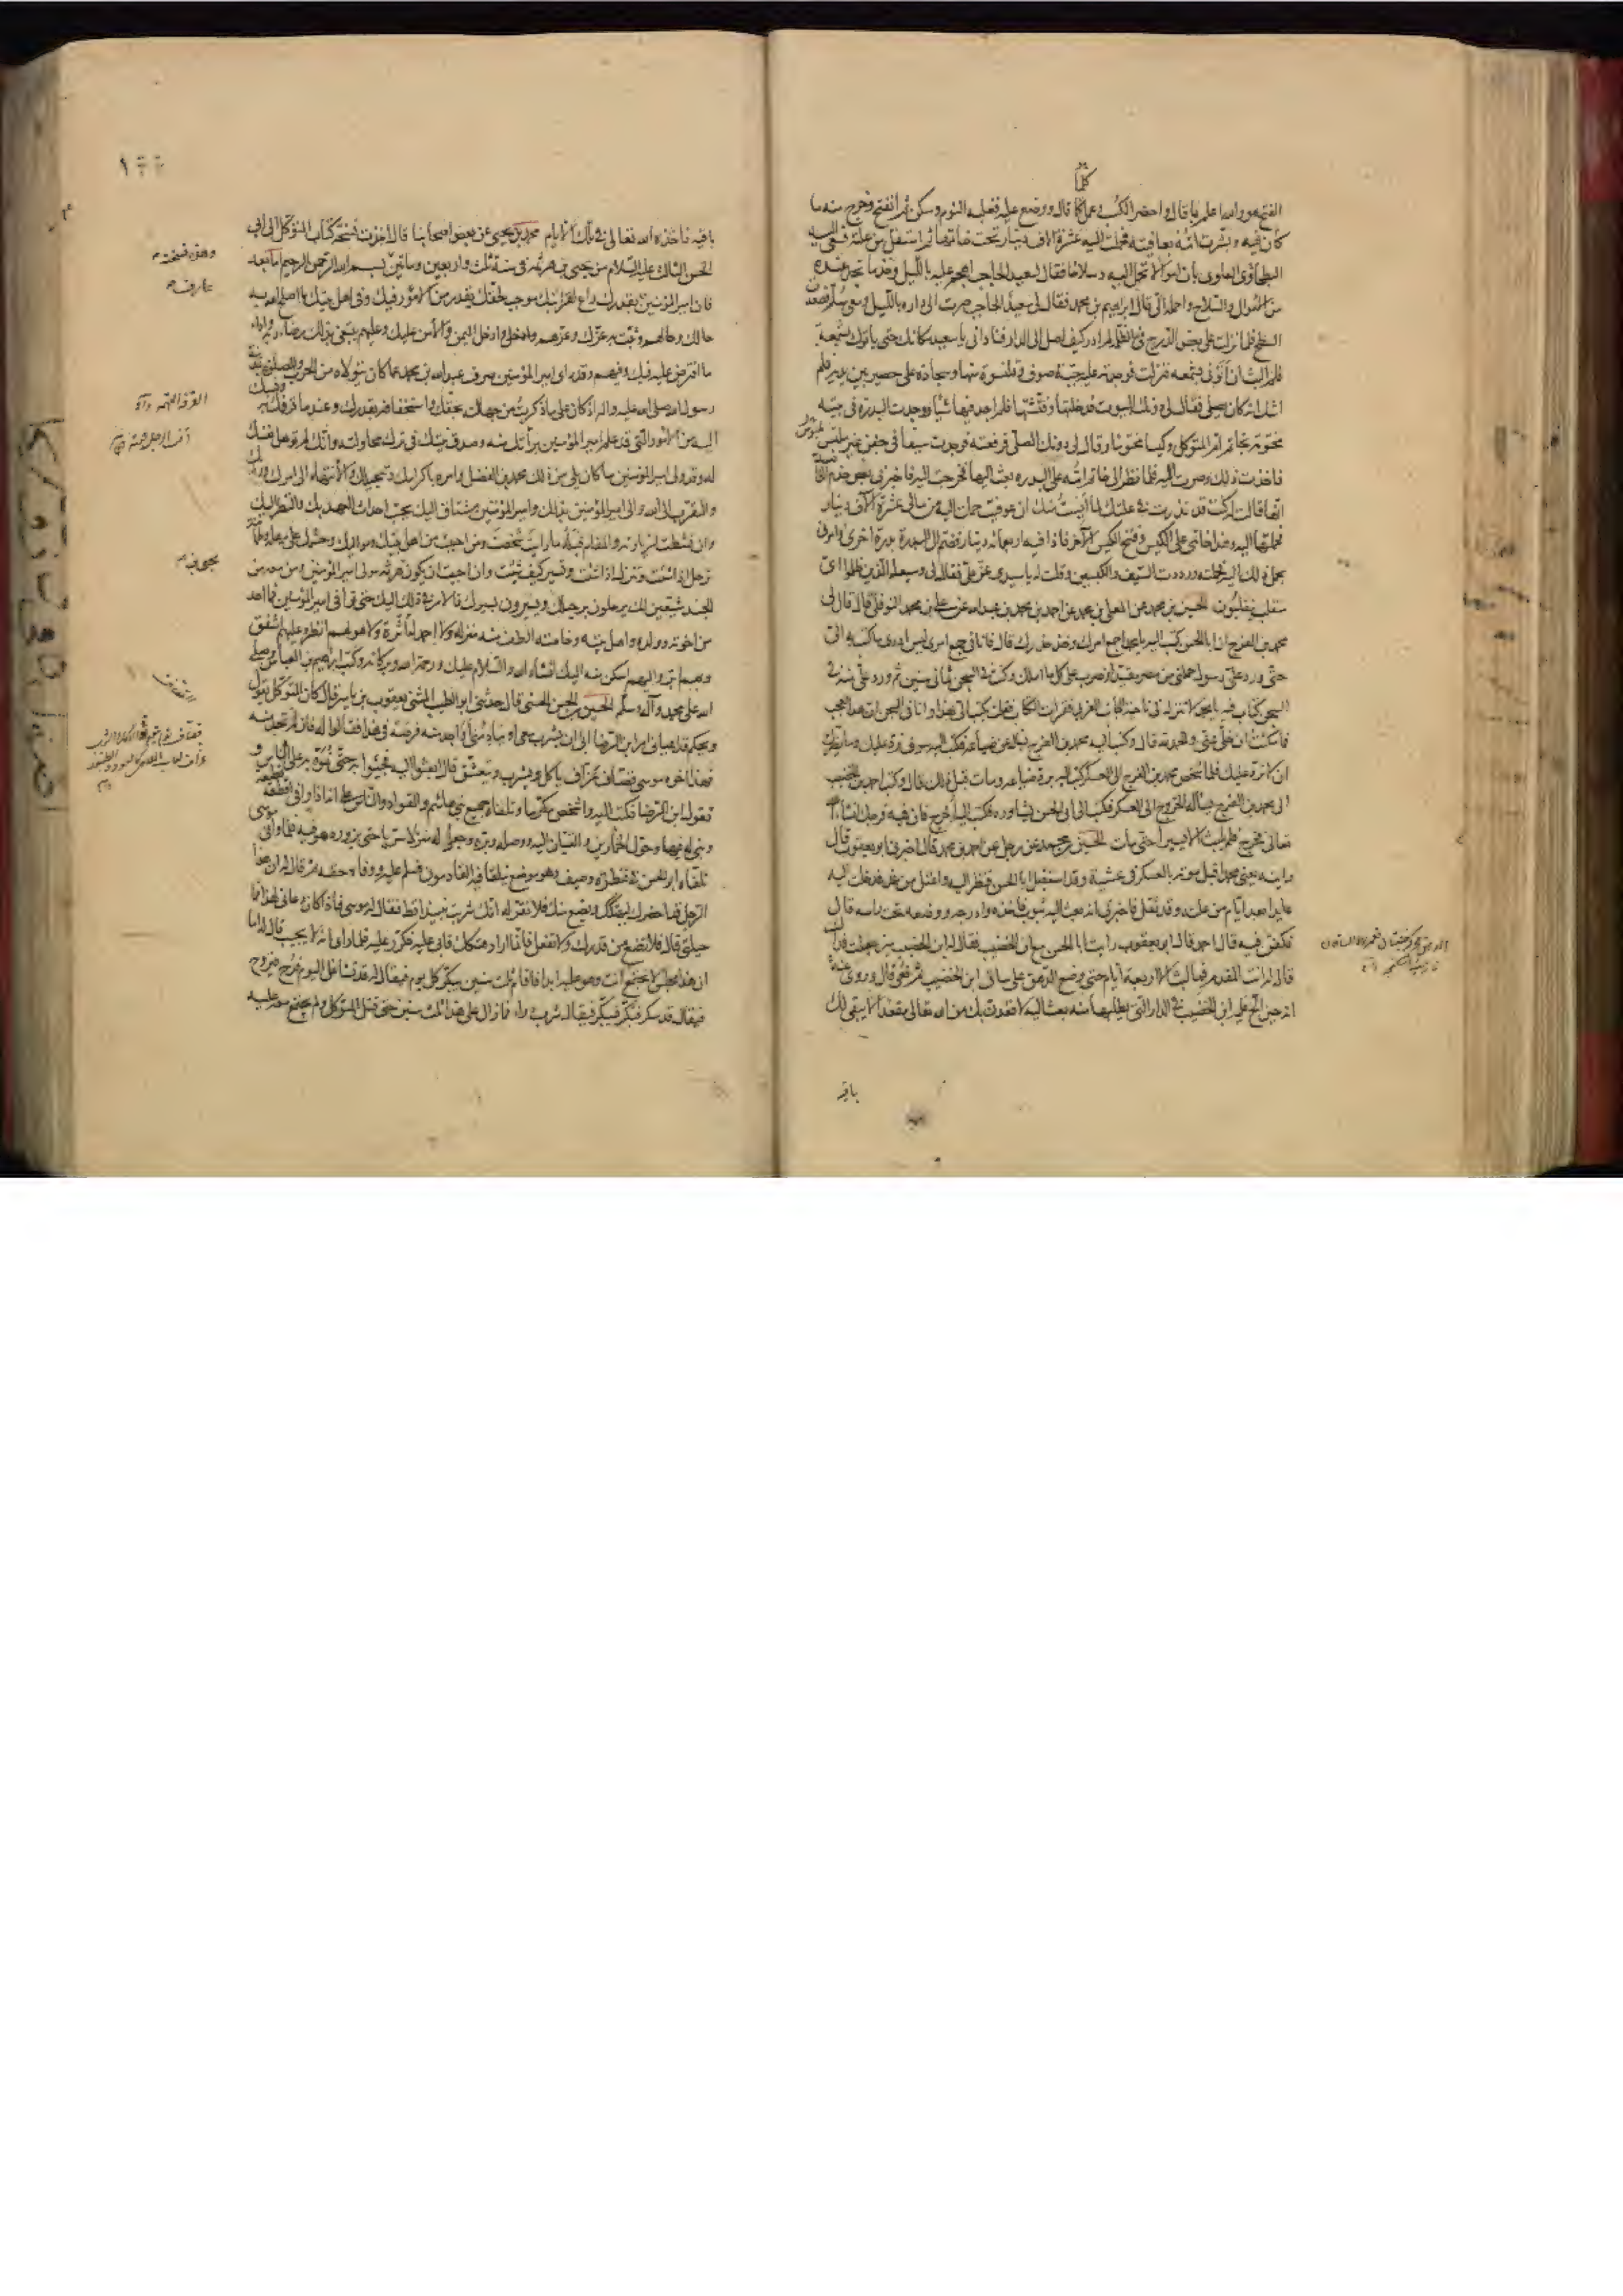 كلما
الفتح هو والله اعلم بما قال واحضر الكسب وعمل كما قال ووضع عليه فغلبه النوم وسكن ثم انفتح وخرج منه ما
كان فيه وبشرت امه بعافيته فحملت اليه عشرة الاف دينار تحت خاتمها ثم استقل من علته فسعى اليه
البطحاوي العلوي بان اموالا تحمل اليه وسلاحا فقال لسعيد الحاجب اهجم عليه بالليل وخذ ما تجد عنده
من الاموال والسلاح واحمله الي قال ابراهيم بن محمد فقال لي سعيد الحاجب صرت الى داره بالليل ومعي سلم فصعدت
السطح فلما نزلت على بعض الدرج في الظلمة لم ادر كيف اصل الى الدار فناداني يا سعيد مكانك حتى ياتوك بشمعة
فلم البث ان اتوني بشمعة فنزلت فوجدته عليه جبة صوف وقلنسوة منها وسجادة على حصير بين يديه فلم
اشك انه كان يصلي فقال لي دونك البيوت فدخلتها وفتشتها فلم اجد فيها شيئا ووجدت البدرة في بيته
مختومة بخاتم ام المتوكل وكيسا مختوما وقال لي دونك المصلى فرفعته فوجدت سيفا في جفن غير ملبس
فاخذت ذلك وصرت اليه فلما نظر الى خاتم امه على البدرة بعث اليها فخرجت اليه فاخبرني بعض خدم الخاصة
انها قالت كنت قد نذرت في علتك لما ايست منك ان عوفيت حملت اليه من مالي عشرة الاف دينار
فحملتها اليه وهذا خاتمي على الكيس وفتح الكيس الآخر فاذا فيه اربعمائة دينار فضم الى البدرة بدرة اخرى وامرني
بحمل ذلك اليه فحملته ورددت السيف والكيسين وقلت له يا سيدي عز علي فقال لي وسيعلم الذين ظلموا اي
منقلب ينقلبون الحسين بن محمد عن المعلى بن محمد عن احمد بن محمد بن عبدالله عن علي بن محمد النوفلي قال قال لي
محمد بن الفرج ان ابا الحسن كتب اليه يا محمد اجمع امرك وخذ حذرك قال فانا في جمع امري ليس ادري ما كتب به الي
حتى ورد علي رسول حملني من مصر مقيدا وضرب على كل ما املك وكنت في السجن ثماني سنين ثم ورد علي منه في
السجن كتاب فيه يا محمد لا تنزل في ناحية الجانب الغربي فقرات الكتاب فقلت يكتب الي بهذا وانا في السجن ان هذا لعجب
فما مكثت ان خلي عني والحمد لله قال وكتب اليه محمد بن الفرج يساله عن ضياعه فكتب اليه سوف ترد عليك وما يضرك
ان لا ترد عليك فلما شخص محمد بن الفرج الى العسكر كتب اليه برد ضياعه ومات قبل ذلك قال وكتب احمد بن الخضيب
الى محمد بن الفرج يساله الخروج الى العسكر فكتب الى ابي الحسن يشاوره فكتب اليه اخرج فان فيه فرجك انشاء الله
تعالى فخرج فلم يلبث الا يسيرا حتى مات الحسين بن محمد عن رجل عن احمد بن محمد قال اخبرني ابو يعقوب قال
رايته يعني محمدا قبل موته بالعسكر في عشية وقد استقبل ابا الحسن فنظر اليه واعتل من غد فدخلت اليه
عايدا بعد ايام من علته وقد ثقل فاخبرني انه بعث اليه بثوب فاخذه وادرجه ووضعه تحت راسه قال
فكفن فيه قال احمد قال ابو يعقوب رايت ابا الحسن مع ابن الخضيب فقال له ابن الخضيب سر جعلت فداك
فقال له انت المقدم فما لبث الا اربعة ايام حتى وضع الدهق على ساق ابن الخضيب ثم نعي قال وروي عنه
انه حين الح عليه ابن الخضيب في الدار التي يطلبها منه بعث اليه لاقعدن بك من الله تعالى مقعدا لا يبقى لك
باقية
باقية فاخذه الله تعالى في تلك الايام محمد بن يحيى عن بعض اصحابنا قال اخذت نسخة كتاب المتوكل الى ابي
الحسن الثالث عليه السلام من يحيى بن هرثمة في سنة ثلث واربعين وماتين بسم الله الرحمن الرحيم اما بعد
فان امير المؤمنين عارف بقدرك راع لقرابتك موجب لحقك يقدر من الامور فيك وفي اهل بيتك ما اصلح الله به
حالك وحالهم وثبت به عزك وعزهم وادخل اليمن والامن عليك وعليهم يبتغي بذلك رضاء ربه واداء
ما افترض عليه فيك وفيهم وقد راى امير المؤمنين صرف عبدالله بن محمد عما كان يتولاه من الحرب والصلوة بمدينة
رسول الله صلى الله عليه واله اذ كان على ما ذكرت من جهالته بحقك واستخفافه بقدرك وعندما قرفك به ونسبك
اليه من الامور التي قد علم امير المؤمنين براتك منه وصدق نيتك في ترك محاولته وانك لم توهل نفسك
له وقد ولى امير المؤمنين ما كان يلي من ذلك محمد بن الفضل وامره باكرامك وتبجيلك والانتهاء الى امرك ورايك
والتقرب الى الله والى امير المؤمنين بذلك وامير المؤمنين مشتاق اليك يحب احداث العهد بك والنظر اليك
فان نشطت لزيارته والمقام قبله ما رايت شخصت ومن احببت من اهل بيتك ومواليك وحشمك على مهلة وطمانينة
ترحل اذا شئت وتنزل اذا شئت وتسير كيف شئت وان احببت ان يكون يحيى بن هرثمة مولى امير المؤمنين ومن معه من
الجند مشيعين لك يرحلون برحيلك ويسيرون بسيرك فالامر في ذلك اليك حتى توافي امير المؤمنين فما احد
من اخوته وولده واهل بيته وخاصته الطف منه منزلة ولا احمد له اثرة ولا هو لهم انظر وعليهم اشفق
وبهم ابر واليهم اسكن منه اليك انشاء الله والسلام عليك ورحمة الله وبركاته وكتب ابراهيم بن العباس وصلى
الله على محمد وآله وسلم الحسين بن الحسن الحسني قال حدثني ابو الطيب المثنى يعقوب بن ياسر قال كان المتوكل يقول
ويحكم قد اعياني امر ابن الرضا ابى ان يشرب معي او ينادمني او اجد منه فرصة في هذا فقالوا له فان لم تجد منه
فهذا اخوه موسى قصاف عزاف ياكل ويشرب ويتعشق قال ابعثوا اليه فجيئوا به حتى نموه به على الناس و
نقول ابن الرضا فكتب اليه واشخص مكرما وتلقاه جميع بني هاشم والقواد والناس على انه اذا وافى اقطعه قطيعة
وبنى له فيها وحول الخمارين والقيان اليه ووصله وبره وجعل له منزلا سريا حتى يزوره هو فيه فلما وافى موسى
تلقاه ابو الحسن في قنطرة وصيف وهو موضع يتلقا فيه القادمون فسلم عليه ووفاه حقه ثم قال له ان هذا
الرجل قد احضرك ليهتكك ويضع منك فلا تقر له انك شربت نبيذا قط فقال له موسى فاذا كان دعاني لهذا فما
حيلتي قال فلا تضع من قدرك ولا تفعل فانما اراد هتكك فابى عليه فكرر عليه فلما راى انه لا يجيب قال اما
ان هذا مجلس لا تجتمع انت وهو عليه ابدا فاقام ثلث سنين يبكر كل يوم فيقال له قد تشاغل اليوم فرح فيروح
فيقال قد سكر فبكر فيبكر فيقال شرب دواء فما زال على هذا ثلث سنين حتى قتل المتوكل ولم يجتمع معه عليه